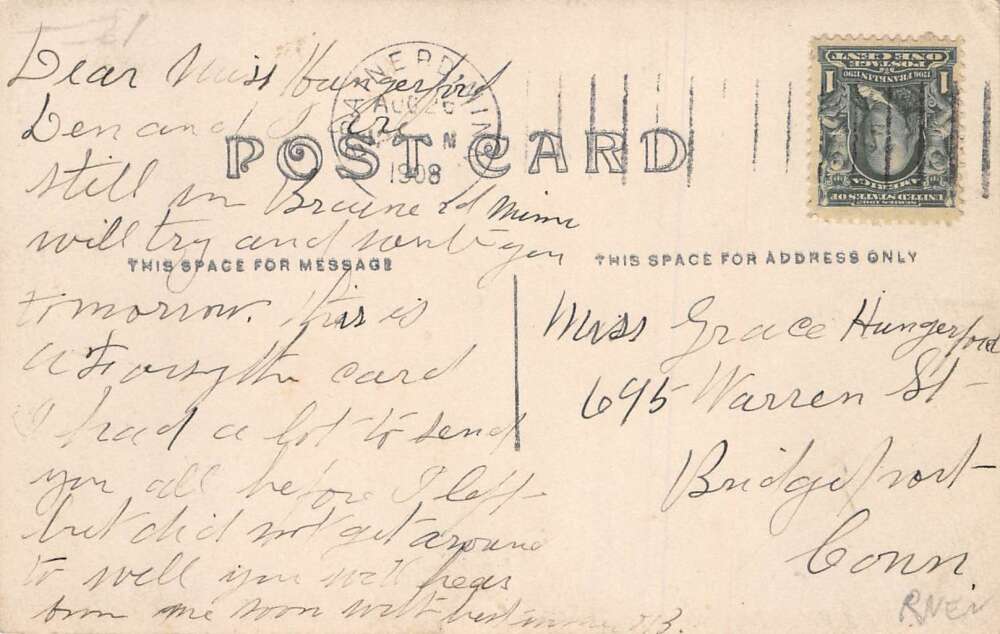 Dear Miss Hungerford
Len and I are
still in Brainerd Minn
will try and write you
tomorrow. This is
a Forsythe card
I had a lot to send
you all before I left
but did not get around
to well you will hear
from me soon with best B.
BRAINERD MINN
AUG 25
1908
POST CARD
THIS SPACE FOR MESSAGE
THIS SPACE FOR ADDRESS ONLY
Miss Grace Hungerford
695 Warren St
Bridgeport
Conn.
UNITED STATES OF
AMERICA
1706 FRANKLIN 1790
POSTAGE
ONE CENT
1 1